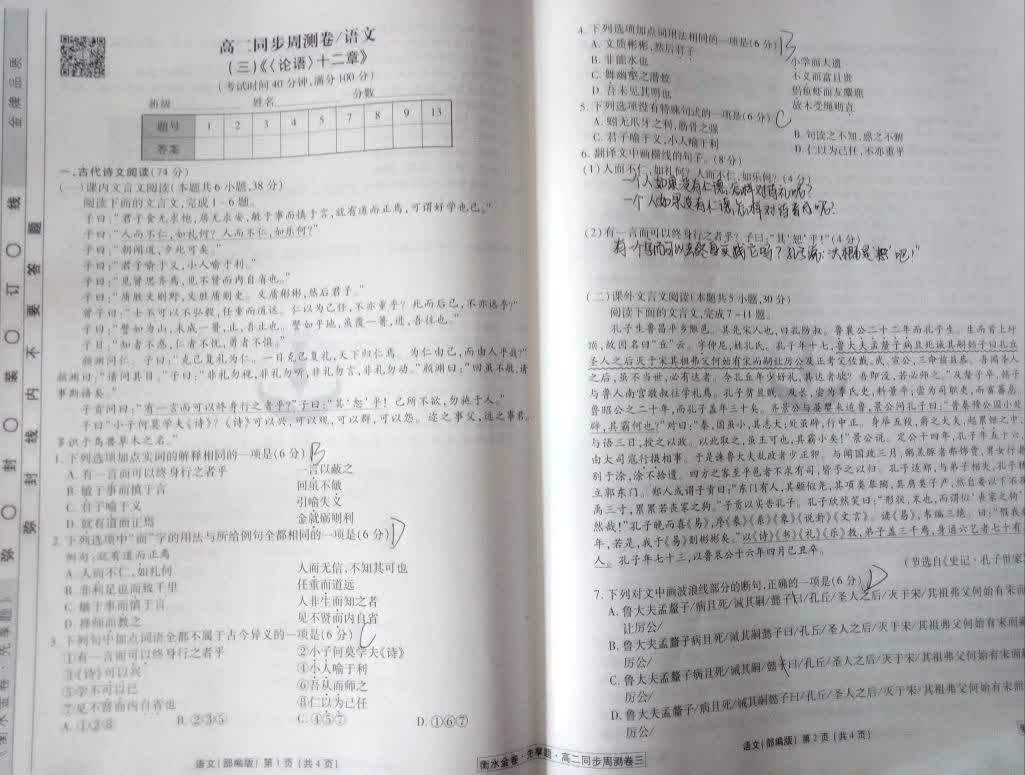 高二同步周测卷/语文
(三)《〈论语〉十二章》
(考试时间40分钟,满分100分)
班级 姓名 分数
题号 1 2 3 4 5 7 8 9 13
答案
一、古代诗文阅读(74分)
(一)课内文言文阅读(本题共6小题,38分)
阅读下面的文言文,完成1~6题。
子曰:“君子食无求饱,居无求安,敏于事而慎于言,就有道而正焉,可谓好学也已。”
子曰:“人而不仁,如礼何?人而不仁,如乐何?”
子曰:“朝闻道,夕死可矣。”
子曰:“君子喻于义,小人喻于利。”
子曰:“见贤思齐焉,见不贤而内自省也。”
子曰:“质胜文则野,文胜质则史。文质彬彬,然后君子。”
曾子曰:“士不可以不弘毅,任重而道远。仁以为己任,不亦重乎?死而后已,不亦远乎?”
子曰:“譬如为山,未成一篑,止,吾止也。譬如平地,虽覆一篑,进,吾往也。”
子曰:“知者不惑,仁者不忧,勇者不惧。”
颜渊问仁。子曰:“克己复礼为仁。一日克己复礼,天下归仁焉。为仁由己,而由人乎哉?”
颜渊曰:“请问其目。”子曰:“非礼勿视,非礼勿听,非礼勿言,非礼勿动。”颜渊曰:“回虽不敏,请
事斯语矣。”
子贡问曰:“有一言而可以终身行之者乎?”子曰:“其‘恕’乎!己所不欲,勿施于人。”
子曰“小子何莫学夫《诗》?《诗》可以兴,可以观,可以群,可以怨。迩之事父,远之事君,
多识于鸟兽草木之名。”
1. 下列选项加点实词的解释相同的一项是(6分) B
A. 有一言而可以终身行之者乎 一言以蔽之
B. 敏于事而慎于言 回虽不敏
C. 君子喻于义 引喻失义
D. 就有道而正焉 金就砺则利
2. 下列选项中“而”字的用法与所给例句全都相同的一项是(6分) D
例句:就有道而正焉
A. 人而不仁,如礼何 人而无信,不知其可也
B. 非利足也而致千里 任重而道远
C. 敏于事而慎于言 人非生而知之者
D. 择师而教之 见不贤而内自省
3. 下列句中加点词语全都不属于古今异义的一项是(6分) C
①有一言而可以终身行之者乎 ②小子何莫学夫《诗》
③《诗》可以兴 ④小人喻于利
⑤学不可以已 ⑥吾从而师之
⑦见不贤而内自省也 ⑧仁以为己任
A. ①②⑧ B. ②③⑤ C. ④⑤⑦ D. ①⑥⑦
语文(部编版) 第1页(共4页)
4. 下列选项加点词用法相同的一项是(6分) B
A. 文质彬彬,然后君子 小学而大遗
B. 非能水也 不义而富且贵
C. 舞幽壑之潜蛟 侣鱼虾而友麋鹿
D. 吾未见其明也 故木受绳则直
5. 下列选项没有特殊句式的一项是(6分) C
A. 蚓无爪牙之利,筋骨之强 B. 句读之不知,惑之不解
C. 君子喻于义,小人喻于利 D. 仁以为己任,不亦重乎
6. 翻译文中画横线的句子。(8分)
(1)人而不仁,如礼何?人而不仁,如乐何?(4分)
一个人如果没有仁德,怎样对待礼呢?
一个人如果没有仁德,怎样对待音乐呢?
(2)有一言而可以终身行之者乎?子曰:“其‘恕’乎!”(4分)
(二)课外文言文阅读(本题共5小题,30分)
阅读下面的文言文,完成7~11题。
孔子生鲁昌平乡陬邑。其先宋人也,曰孔防叔。鲁襄公二十二年而孔子生。生而首上圩
顶,故因名曰“丘”云。字仲尼,姓孔氏。孔子年十七,鲁大夫孟釐子病且死诫其嗣懿子曰孔丘
圣人之后灭于宋其祖弗父何始有宋而嗣让厉公及正考父佐戴、武、宣公,三命兹益恭。吾闻圣人
之后,虽不当世,必有达者。今孔丘年少好礼,其达者欤?吾即没,若必师之。”及釐子卒,懿子
与鲁人南宫敬叔往学礼焉。孔子贫且贱。及长,尝为季氏史,料量平;尝为司职吏,而畜蕃息。
鲁昭公之二十年,而孔子盖年三十矣。齐景公与晏婴来适鲁,景公问孔子曰:“昔秦穆公国小处
辟,其霸何也?”对曰:“秦,国虽小,其志大;处虽辟,行中正。身举五羖,爵之大夫,起累绁之中,
与语三日,授之以政。以此取之,虽王可也,其霸小矣!”景公说。定公十四年,孔子年五十六,
由大司寇行摄相事。于是诛鲁大夫乱政者少正卯。与闻国政三月,粥羔豚者弗饰贾,男女行者
别于涂,涂不拾遗。四方之客至乎邑者不求有司,皆予之以归。孔子适郑,与弟子相失,孔子独
立郭东门。郑人或谓子贡曰:“东门有人,其颡似尧,其项类皋陶,其肩类子产,然自要以下不及
禹三寸,累累若丧家之狗。”子贡以实告孔子。孔子欣然笑曰:“形状,末也,而谓似‘丧家之狗’
然哉!”孔子晚而喜《易》,序《彖》《系》《象》《说卦》《文言》。读《易》,韦编三绝。曰:“假我数
年,若是,我于《易》则彬彬矣。”以《诗》《书》《礼》《乐》教,弟子盖三千焉,身通六艺者七十有二
人。孔子年七十三,以鲁哀公十六年四月己丑卒。
(节选自《史记·孔子世家
7. 下列对文中画波浪线部分的断句,正确的一项是(6分) D
A. 鲁大夫孟釐子/病且死/诫其嗣/懿子曰/孔丘/圣人之后/灭于宋/其祖弗父何始有宋而
让厉公/
B. 鲁大夫孟釐子病且死/诫其嗣懿子曰/孔丘/圣人之后/灭于宋/其祖弗父何始有宋而嗣
厉公/
C. 鲁大夫孟釐子病且死/诫其嗣/懿子曰/孔丘/圣人之后/灭于宋/其祖弗父何始有宋而
厉公/
D. 鲁大夫孟釐子/病且死/诫其嗣懿子曰/孔丘/圣人之后/灭于宋/其祖弗父何始有宋而
厉公/
语文(部编版) 第2页(共4页)
衡水金卷·先享题·高二同步周测卷三